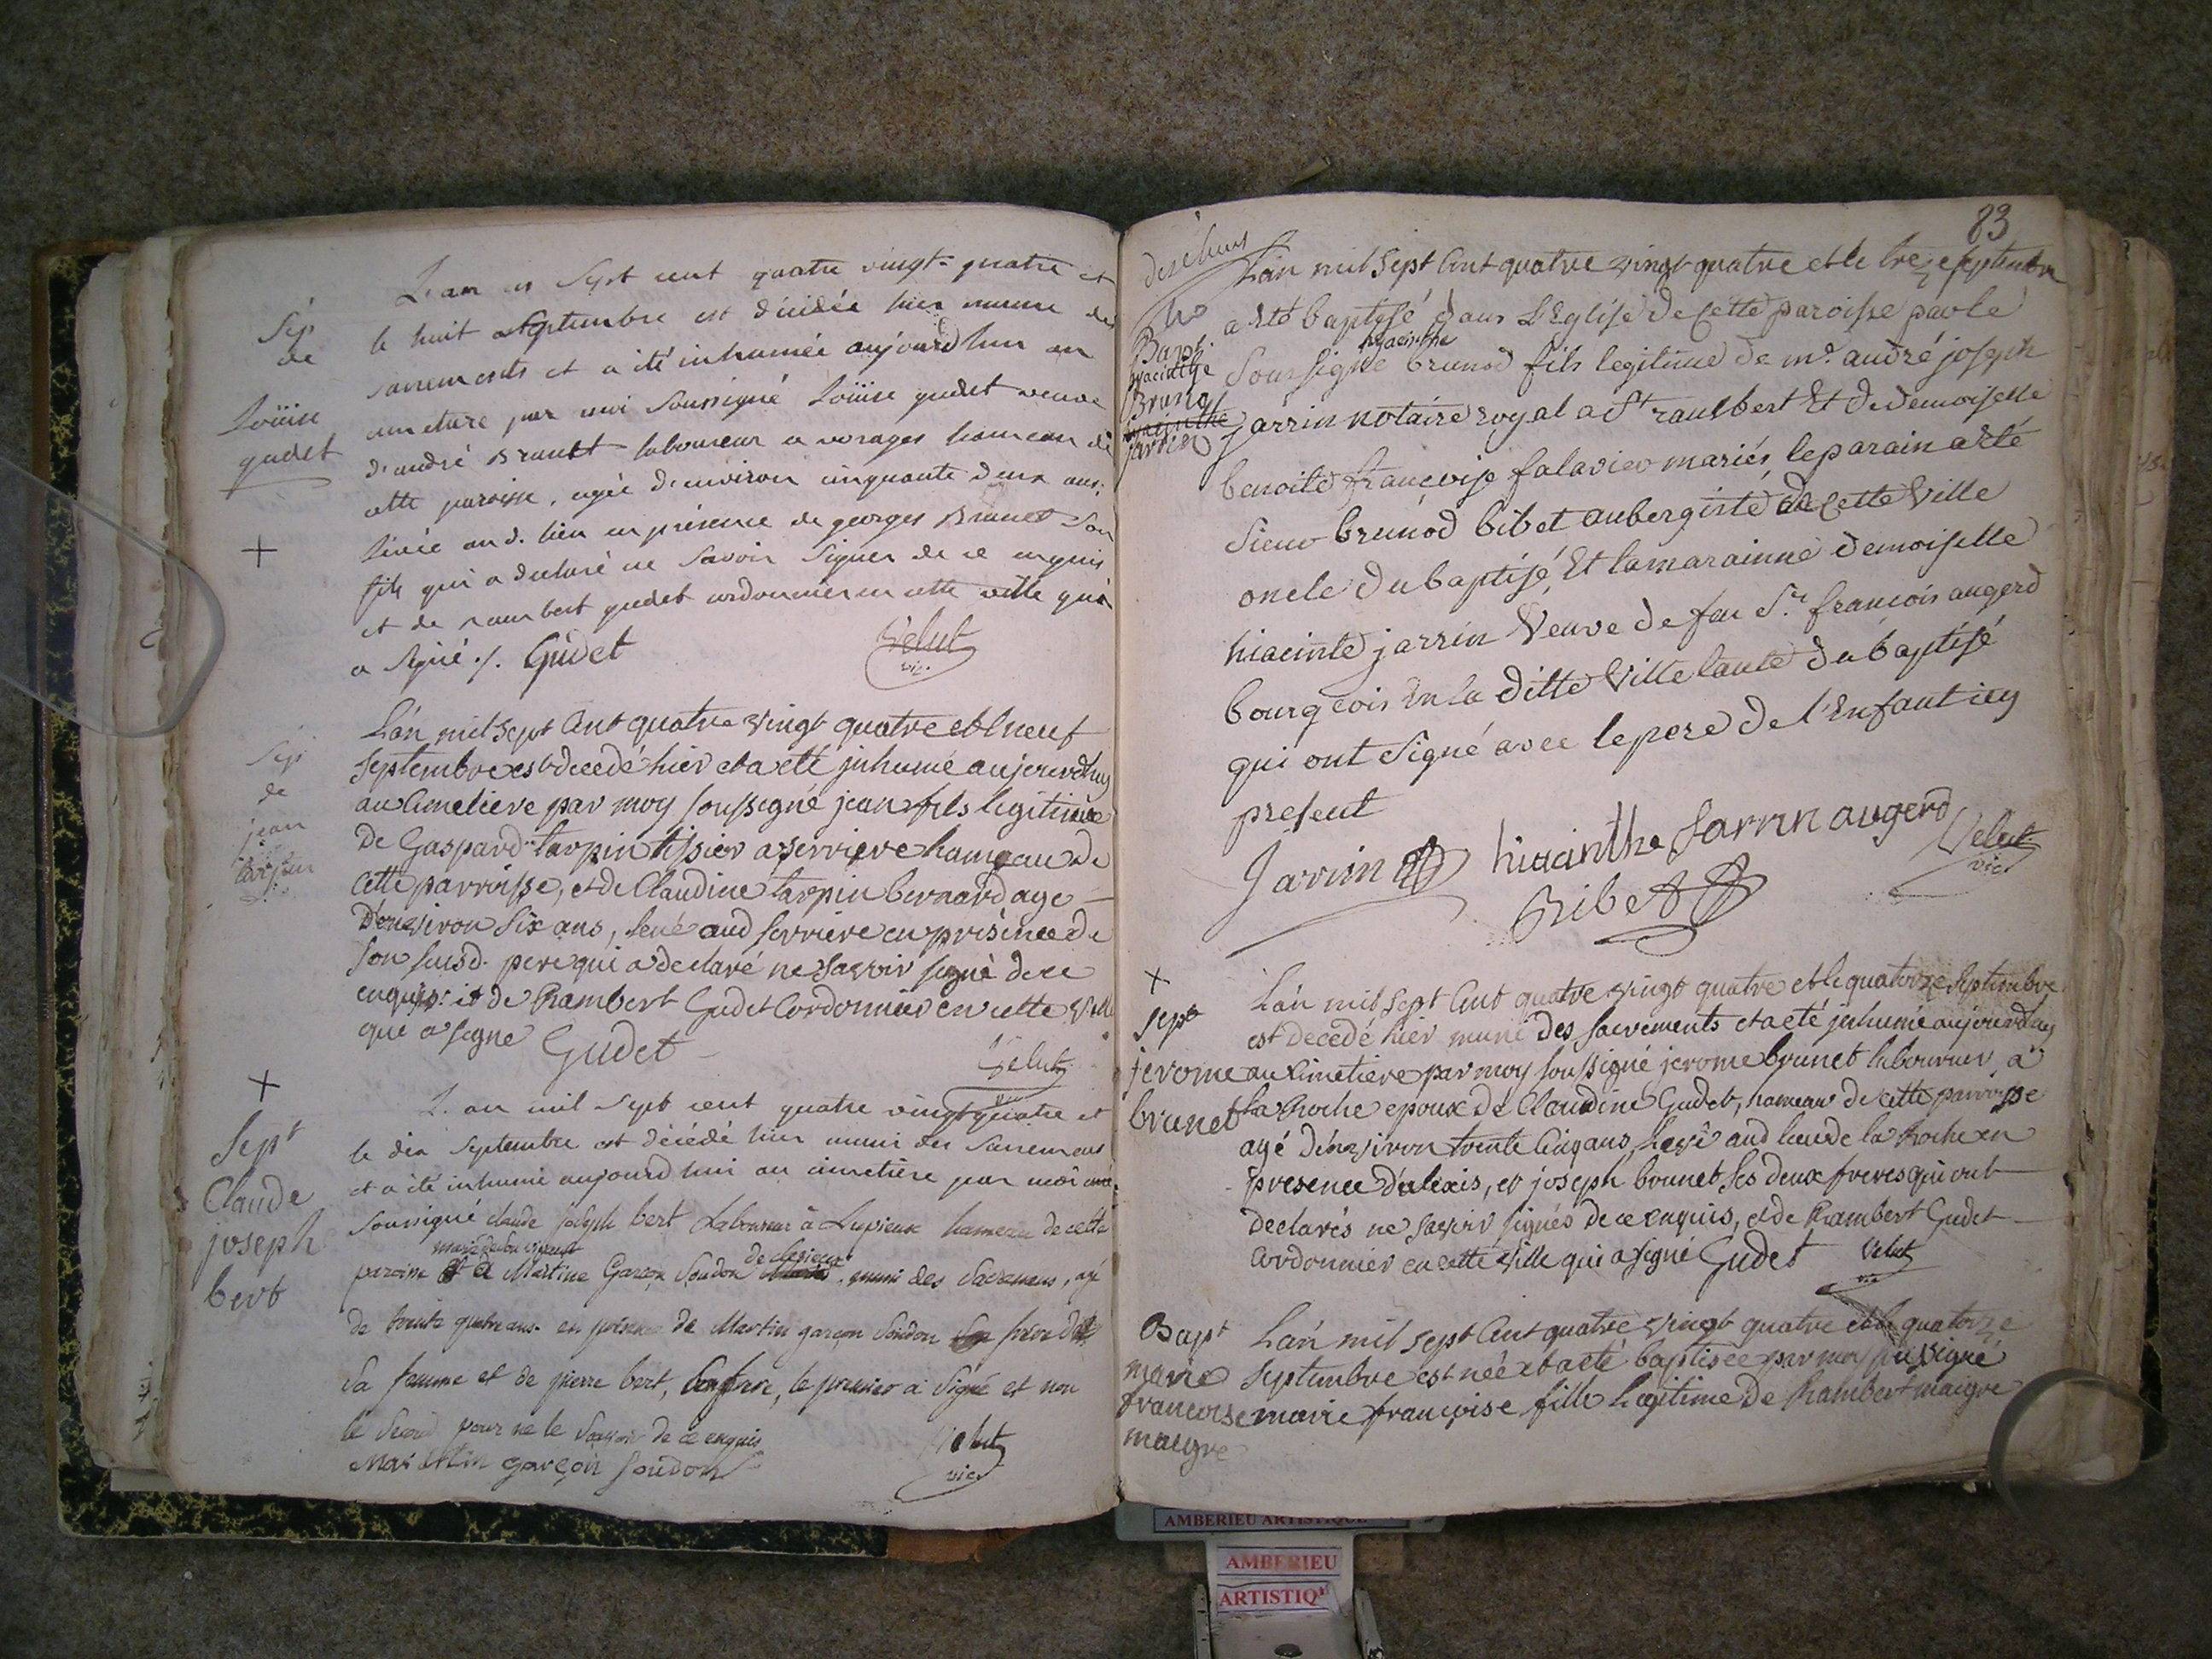 Sép
de
Loüise
gudet
L'an m sept cent quatre vingt-quatre et
le huit septembre est décédée hier munie des
sacrements et a été inhumée aujourd'hui au
cimetiere par moi soussigné Loüise gudet veuve
d'andré Brunet laboureur a vorages hameau de
cette paroisse, agée d'environ cinquante deux ans,
levée aud. lieu en présence de georges Brunet son
fils qui a declaré ne savoir signer de ce enquis
et de rambert gudet cordonnier en cette ville qui
a signé ./. Gudet
Velut
vic.
Sep
de
jean
tarpin
L'an mil sept cent quatre vingt quatre et le neuf
septembre est decedé hier et a eté jnhumé aujourdhuy
au cimetiere par moy soussigné jean fils legitime
de Gaspard tarpin tissier a serriere hameau de
cette parroisse, et de Claudine tarpin bernard age
d'environ six ans, levé aud serriere en présence de
son susd. pere qui a declaré ne savoir signé de ce
enquis et de Rambert Gudet Cordonnier en cette ville
que a signe Gudet
Velut
vic
+
Sept
Claude
joseph
bert
L'an mil sept cent quatre vingt quatre et
le dix septembre est décédé hier muni des sacremens
et a été inhumé aujourd'hui au cimetière par moi
soussigné claude joseph bert Laboureur à Lupieux hameau de cette
mari de son vivant
paroisse de Martine Garçon Soudon muni des Sacremens, agé
de trente quatre ans. en présence de Martin garçon Soudon frere de
sa femme et de pierre bert, son frere, le premier a signé et non
le second pour ne le savoir de ce enquis
Martin garçon soudon
Velut
vic
83
Bapt.
hyacinthe
Bruno
hyacinthe
jarrin
L'an mil sept cent quatre vingt quatre et le treze septembre
a eté baptisé dans L'Eglise de cette paroisse par le
hyacinthe
soussigné brunod fils legitime de me. andré joseph
jarrin notaire royal a St rambert Et de demoiselle
benoite françoise falavier mariés, le parain a eté
sieur brunod bibet aubergiste de cette ville
oncle du baptisé, Et la marainne demoiselle
hiacinte jarrin veuve de feu Sr. francois augerd
bourgeois en la ditte ville tante du baptisé
qui ont signé avec le pere de l'Enfant icy
present
Jarrin hiacinthe Jarrin augerd
Velut
vic
Bibet
+
sept
jerome
brunet
L'an mil sept cent quatre vingt quatre et le quatorze septembre
est decedé hier muni des sacrements et a eté jnhumé aujourdhuy
au cimetiere par moy soussigné jerome brunet laboureur a
la Roche epoux de Claudine Gudet, hameau de cette parroisse
agé d'environ trente cinq ans, levé aud lieu de la Roche en
presence d'alexis, et joseph brunet ses deux freres qui ont
declarés ne savoir signés de ce enquis, et de Rambert Gudet
cordonnier en cette ville qui a signé Gudet Velut
vic
Bapt
marie
francoise
maigre
L'an mil sept cent quatre vingt quatre et le quatorze
septembre est née et a eté baptisée par moy sussigné
marie françoise fille legitime de Rambert maigre
AMBERIEU ARTISTIQUE
AMBERIEU
ARTISTIQ